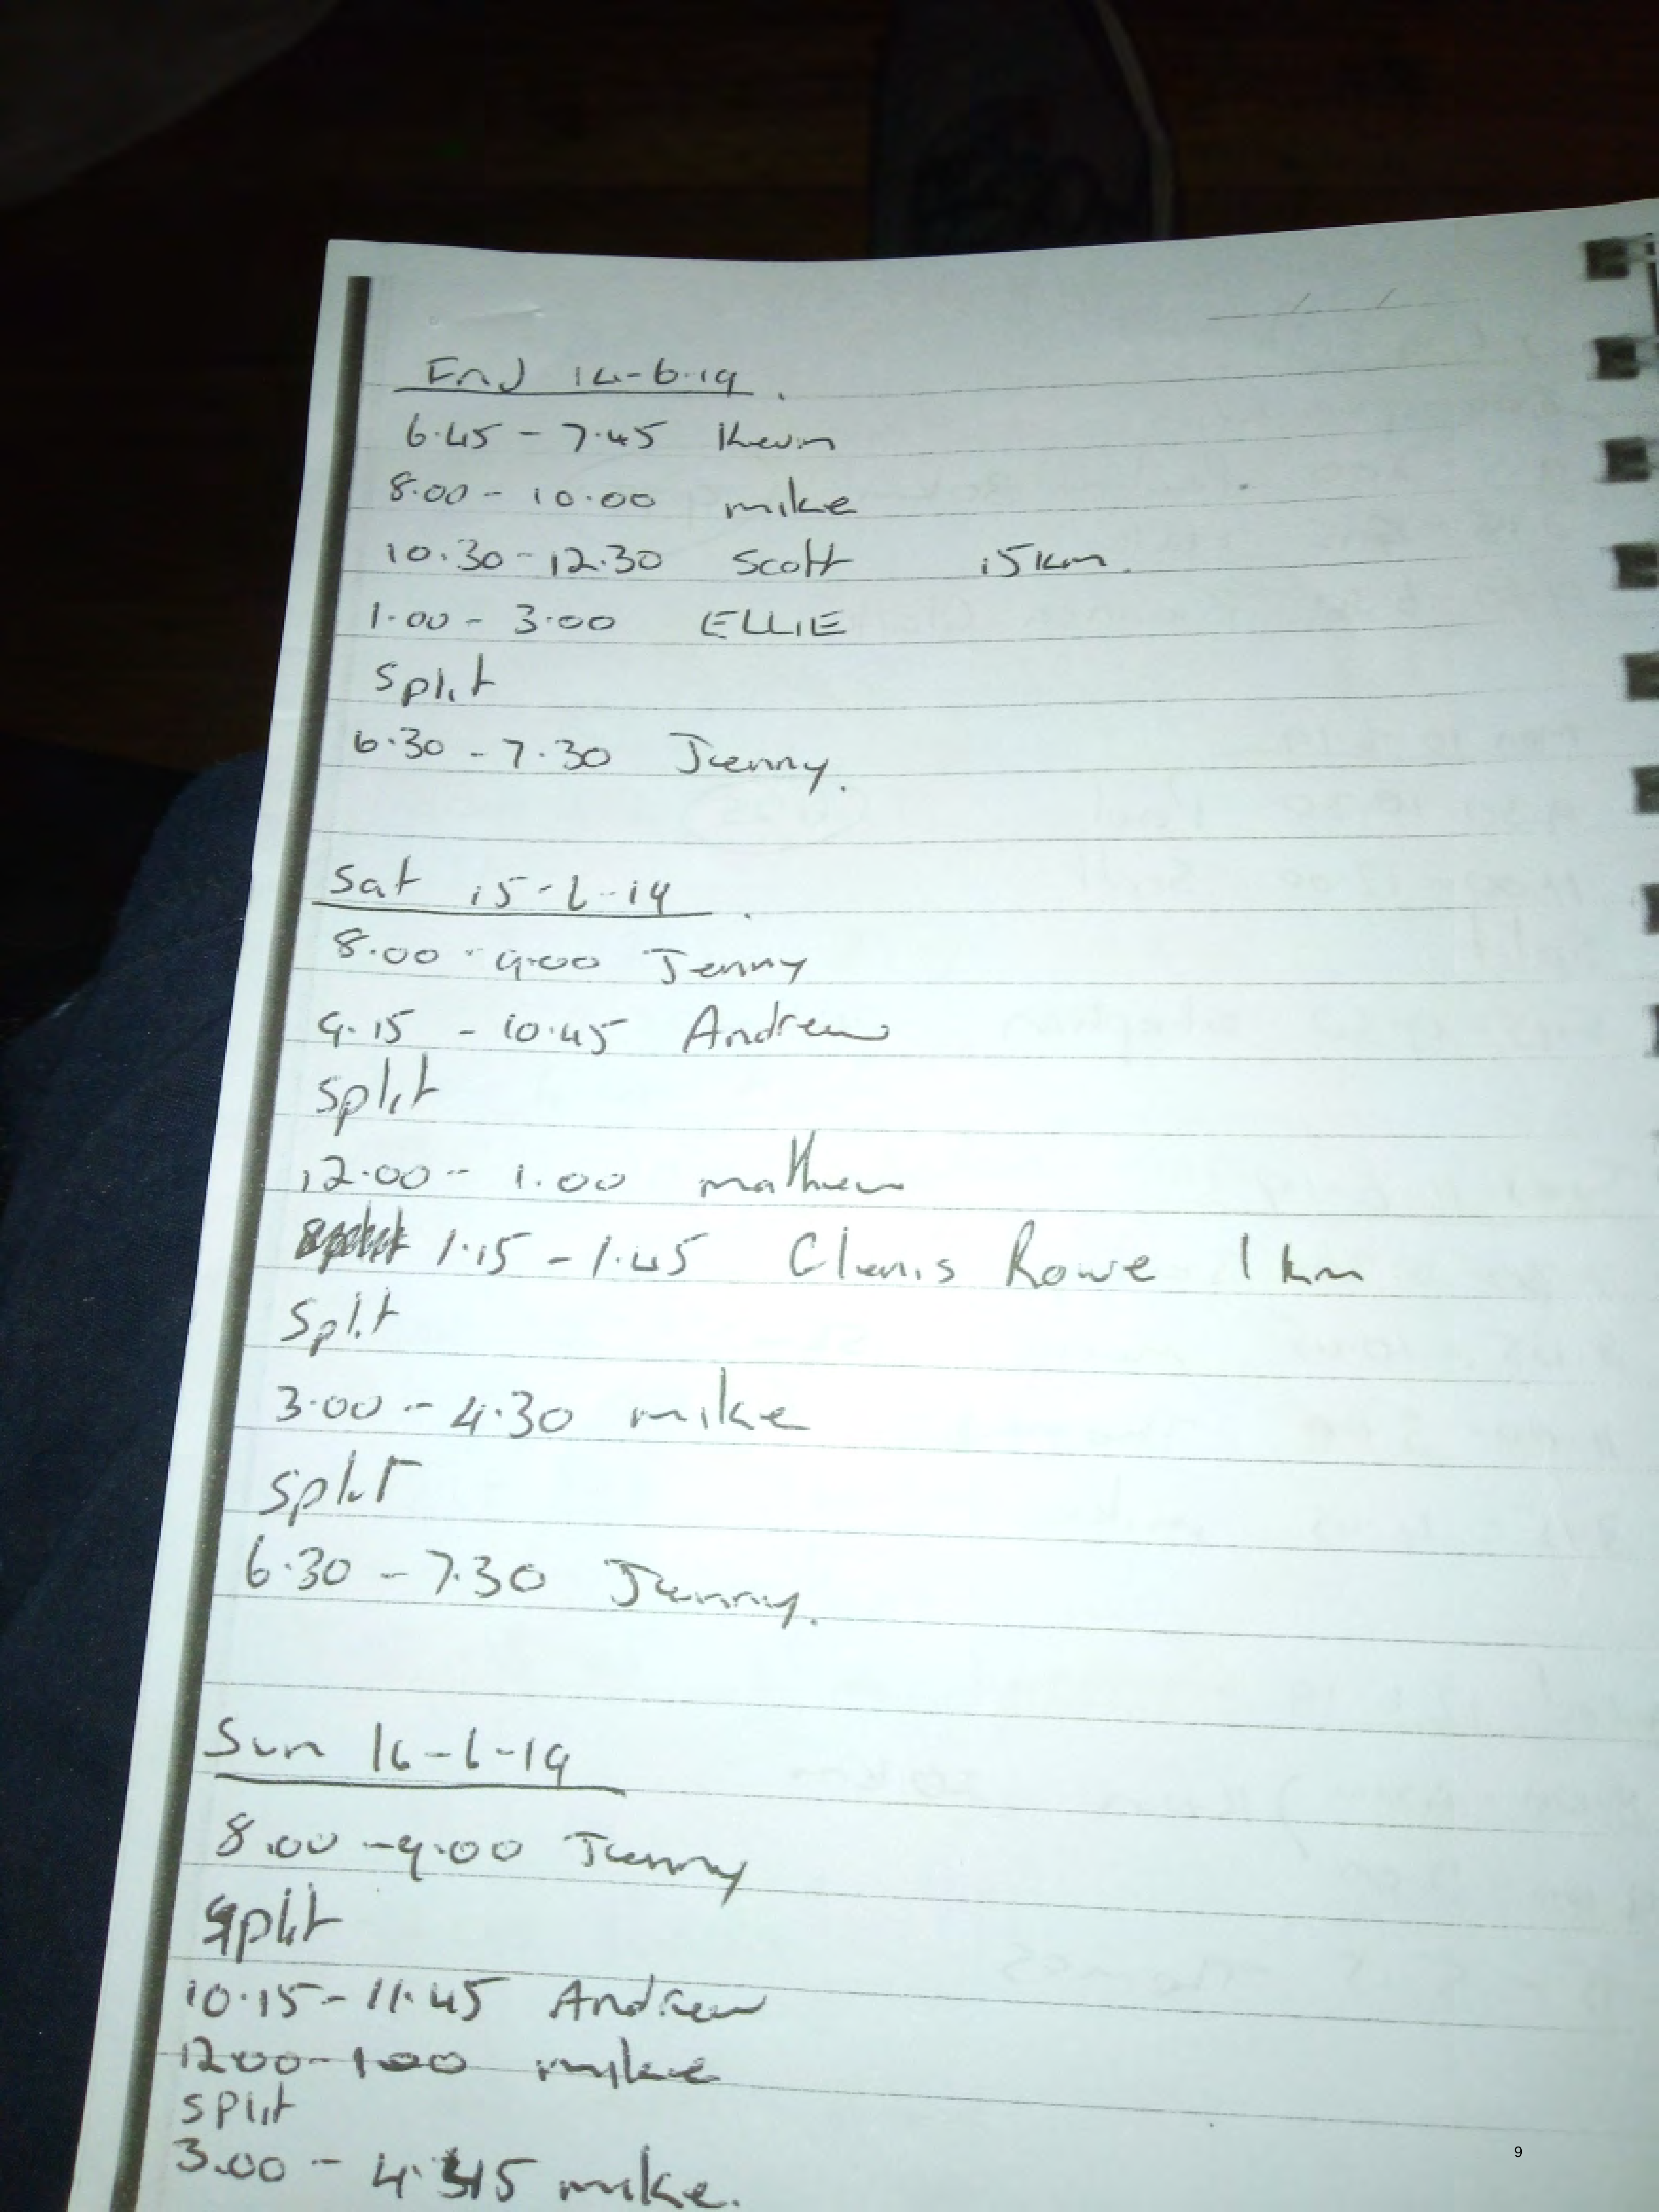 Frid 14-6-19
6.45 - 7.45 Kevin
8.00 - 10.00 mike
10.30 - 12.30 Scott 15km.
1.00 - 3.00 ELLIE
Split
6.30 - 7.30 Jenny.
Sat 15-6-19
8.00 - 9.00 Jenny
9.15 - 10.45 Andrew
Split
12.00 - 1.00 mathew
1.15 - 1.45 Glenis Rowe 1km
Split
3.00 - 4.30 mike
Split
6.30 - 7.30 Jenny.
Sun 16-6-19
8.00 - 9.00 Jenny
Split
10.15 - 11.45 Andrew
12.00 - 1.00 mike
split
3.00 - 4.45 mike.
9